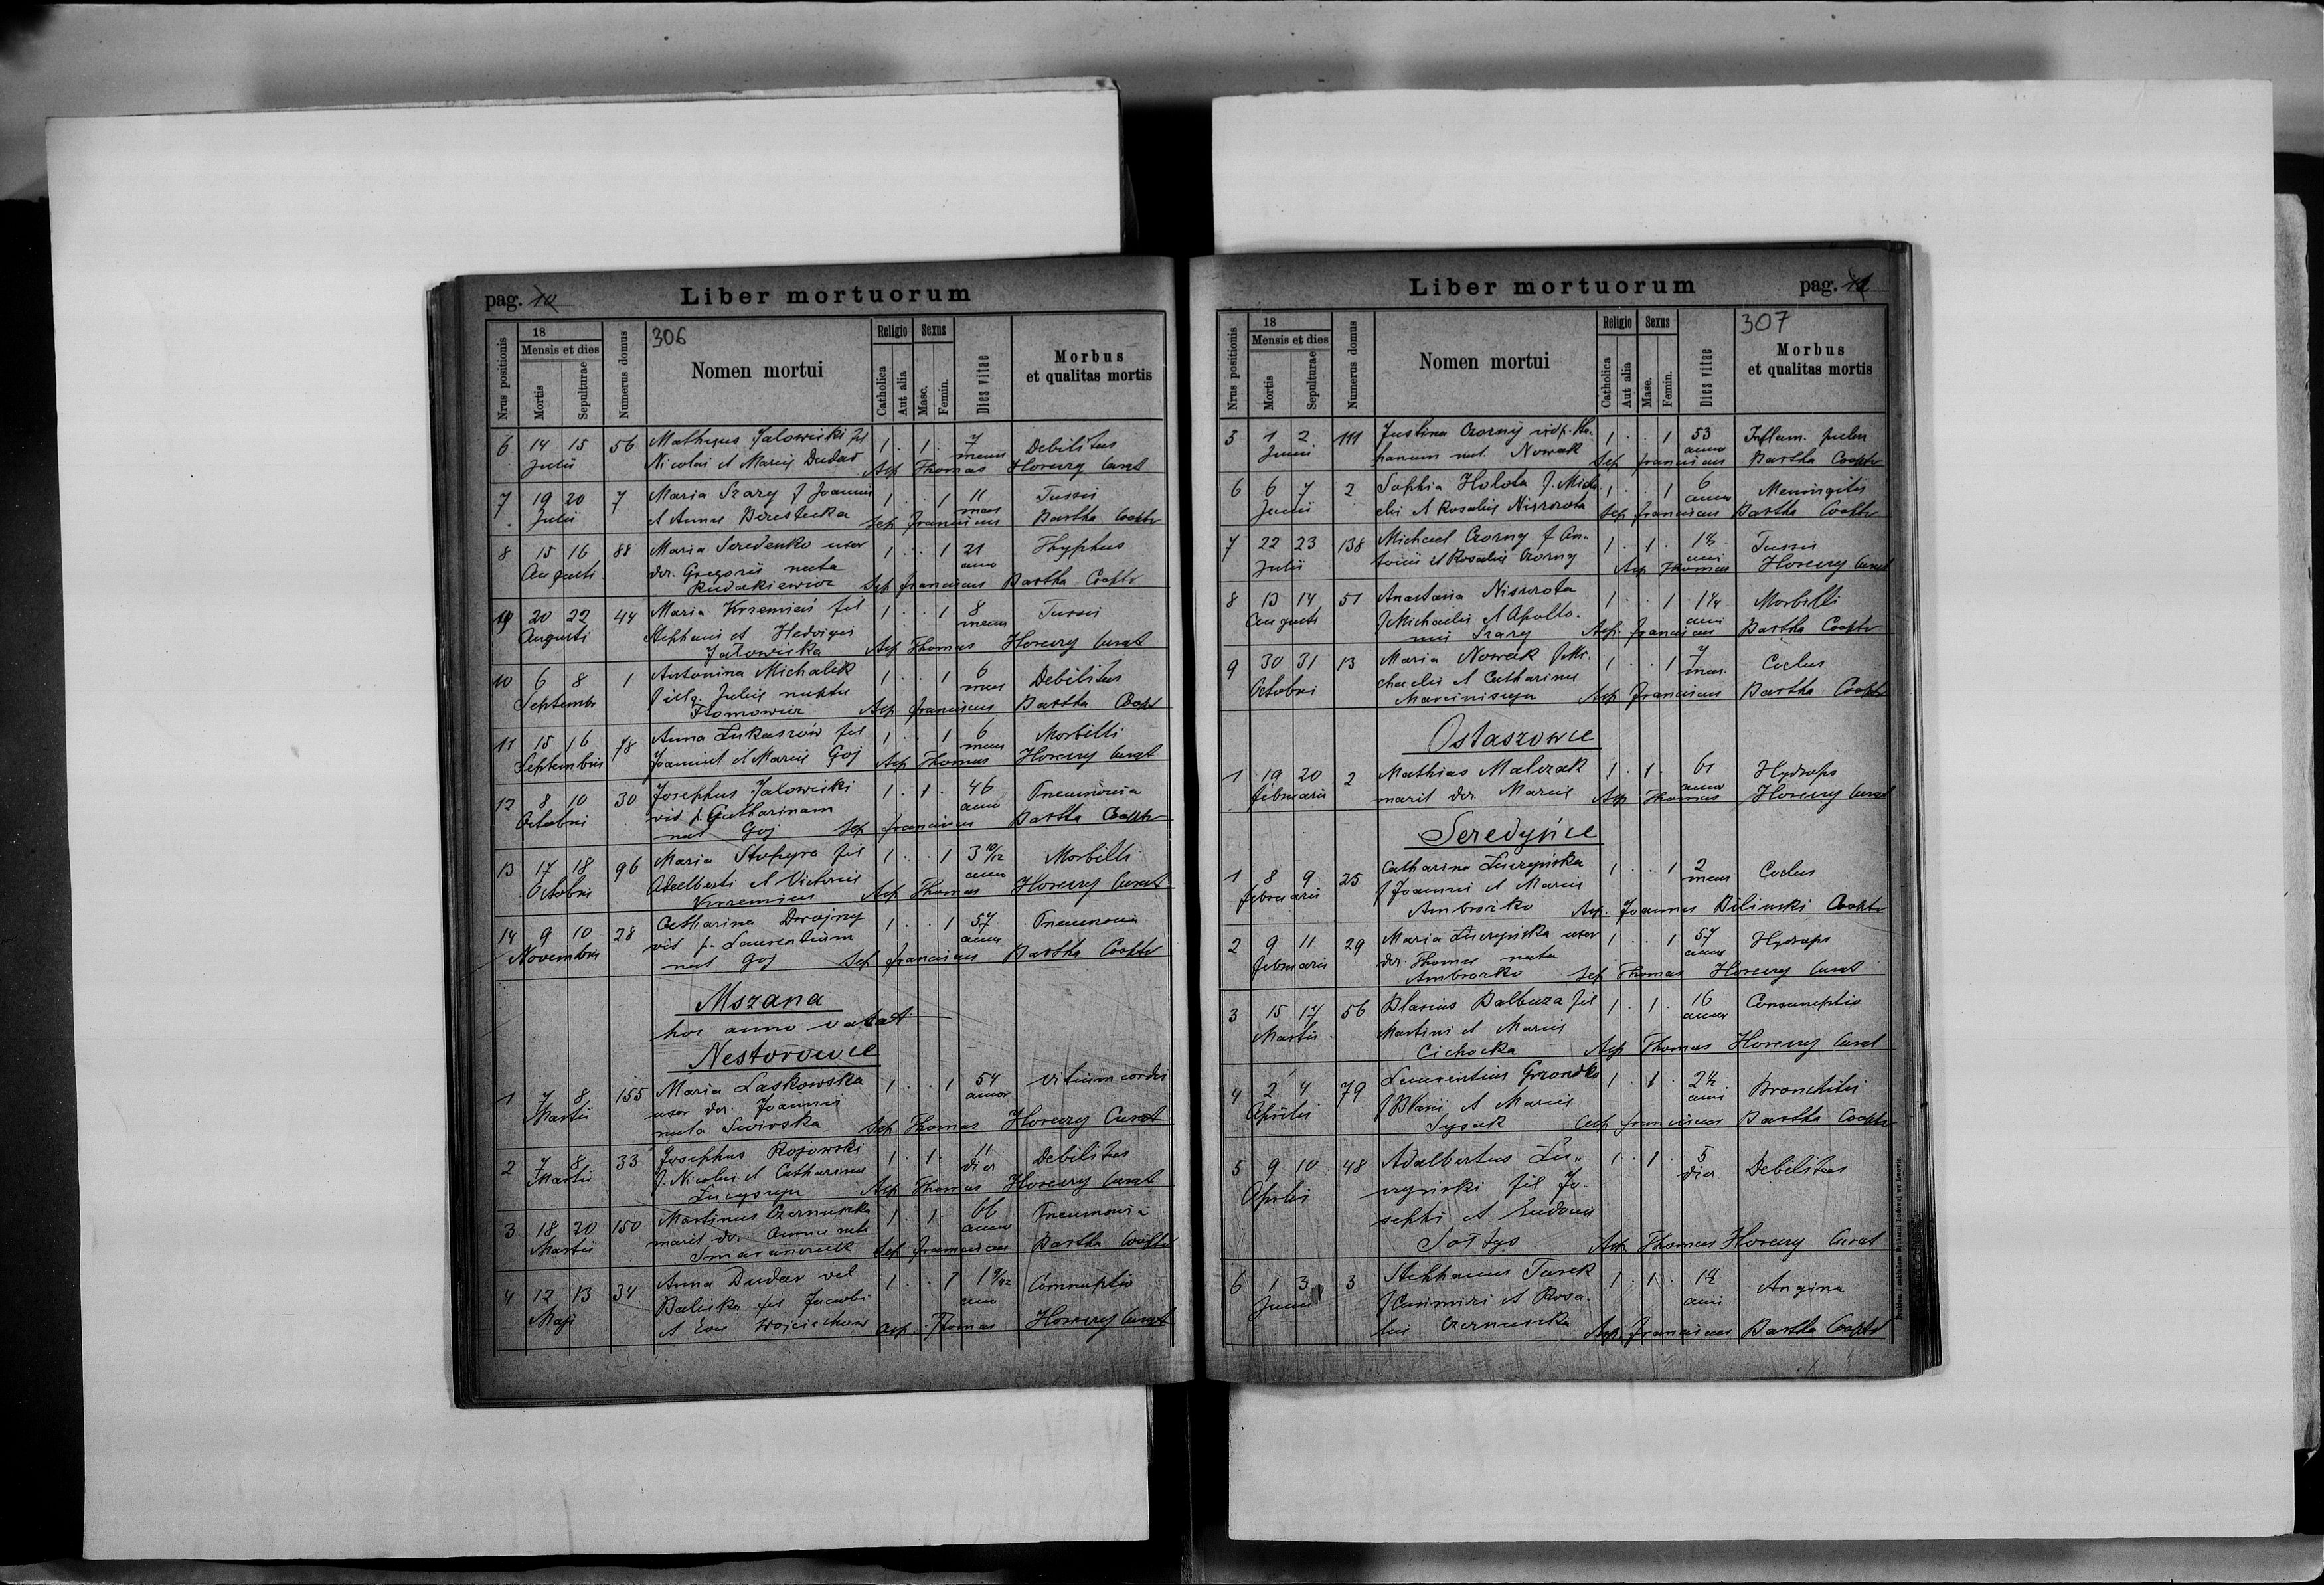 pag. 10 Liber mortuorum
306
Nrus positionis
18
Mensis et dies
Mortis
Sepulturae
Numerus domus
Nomen mortui
Religio
Catholica
Aut alia
Sexus
Masc.
Femin.
Dies vitae
Morbus
et qualitas mortis
6 14 15 56 Matheus Jalowicki fil 1 . 1 . 7 Debilitas
Julii Nicolai et Mariae Dudar mens
Sep Thomas Horeczy Curat
7 19 20 7 Maria Szary f Joannis 1 . . 1 11 Tussis
Julii et Annae Berestecka mens
Sep Franciscus Bartha Cooptr
8 15 16 88 Maria Seredenko uxor 1 . . 1 21 Thyphus
Augusti der. Gregorii nata anno
Rudakiewicz Sep Franciscus Bartha Cooptr
9 20 22 44 Maria Krzemień fil 1 . . 1 8 Tussis
Augusti Stephani et Hedvigis mens
Jalowicka Sep Thomas Horeczy Curat
10 6 8 1 Antonina Michalek 1 . . 1 6 Debilitas
Septembr Juliae nuptae mens
Sep Franciscus Bartha Coop
11 15 16 78 Anna Lukaszów fil 1 . . 1 6 Morbilli
Septembris Joannis et Mariae Goj mens
Sep Thomas Horeczy Curat
12 8 10 30 Josephus Jalowicki 1 . 1 . 46 Pneumonia
Octobris vid p. Catharinam anno
nat Goj Sep Franciscus Bartha Cooptr
13 17 18 96 Maria Stopyra fil 1 . . 1 3 10/12 Morbilli
Octobris Adalberti et Victoriae anno
Krzemień Sep Thomas Horeczy Curat
14 9 10 28 Catharina Dwojny 1 . . 1 57 Pneumonia
Novembris vid p. Laurentium anno
nat Goj Sep Franciscus Bartha Cooptr
Mszana
hoc anno vacat
Nestorowce
1 7 8 155 Maria Laskowska 1 . . 1 54 Vitium cordis
Martii uxor der. Joannis annor
nata Sep Thomas Horeczy Curat
2 7 8 33 Josephus Rojowski 1 . 1 . 11 Debilitas
Martii f. Nicolai et Catharinae dier
Sep Thomas Horeczy Curat
3 18 20 150 Martinus Czernuszka 1 . 1 . 66 Pneumonia
Martii marit der Annae nata anno
Sep Franciscus Bartha Cooptr
4 12 13 34 Anna Dudar vel 1 . . 1 1 9/12 Consumptio
Maji fil Jacobi anno
et Evae Wojciechow Sep. Thomas Horeczy Curat
Liber mortuorum pag. 11
307
Nrus positionis
18
Mensis et dies
Mortis
Sepulturae
Numerus domus
Nomen mortui
Religio
Catholica
Aut alia
Sexus
Masc.
Femin.
Dies vitae
Morbus
et qualitas mortis
5 1 2 111 Justina Czorny vid p. Ste- 1 . . 1 53 Inflam. pulm
Junii phanum nat. Nowak anno
Sep Franciscus Bartha Cooptr
6 6 7 2 Sophia Holota f. Micha- 1 . . 1 6 Meningitis
Junii elis et Rosaliae Niszrota annor
Sep Franciscus Bartha Cooptr
7 22 23 138 Michael Czorny f An- 1 . 1 . 1½ Tussis
Julii tonii et Rosaliae Czorny anni
Sep Thomas Horeczy Curat
8 13 14 51 Anastasia Niszrota 1 . . 1 1¼ Morbilli
Augusti f Michaelis et Apollo- anni
niae Szary Sep. Franciscus Bartha Cooptr
9 30 31 13 Maria Nowak f. Mi- 1 . . 1 7 Coclus
Octobris chaelis et Catharinae mens.
Marciniszyn Sep Franciscus Bartha Cooptr
Ostaszowce
1 19 20 2 Mathias Malczak 1 . 1 . 61 Hydrops
Februarii marit der Mariae anno
Sep Thomas Horeczy Curat
Seredyńce
1 8 9 25 Catharina Luczyńska 1 . . 1 2 Coclus
Februarii f Joannis et Mariae mens
Ambrożko Sep. Joannes Bilinski Cooptr
2 9 11 29 Maria Luczyńska uxor 1 . . 1 57 Hydrops
Februarii der. Thomae nata annor
Ambrożko Sep Thomas Horeczy Curat
3 15 17 56 Blasius Balbuza fil 1 . 1 . 16 Consumptio
Martii Martini et Mariae annor
Cichocka Sep Thomas Horeczy Curat
4 2 4 79 Laurentius Grzondko 1 . 1 . 2½ Bronchitis
Aprilis f Blasii et Mariae anni
Sysak Sep Franciscus Bartha Cooptr
5 9 10 48 Adalbertus Lu- 1 . 1 . 5 Debilitas
Aprilis czyński fil Jo- dier
sephi et Eudoxiae
Sołtys Sep Thomas Horeczy Curat
6 1 3 3 Stephanus Turek 1 . 1 . 1½ Angina
Junii f Casimiri et Rosa- anni
liae Czernuszka Sep. Franciscus Bartha Cooptr